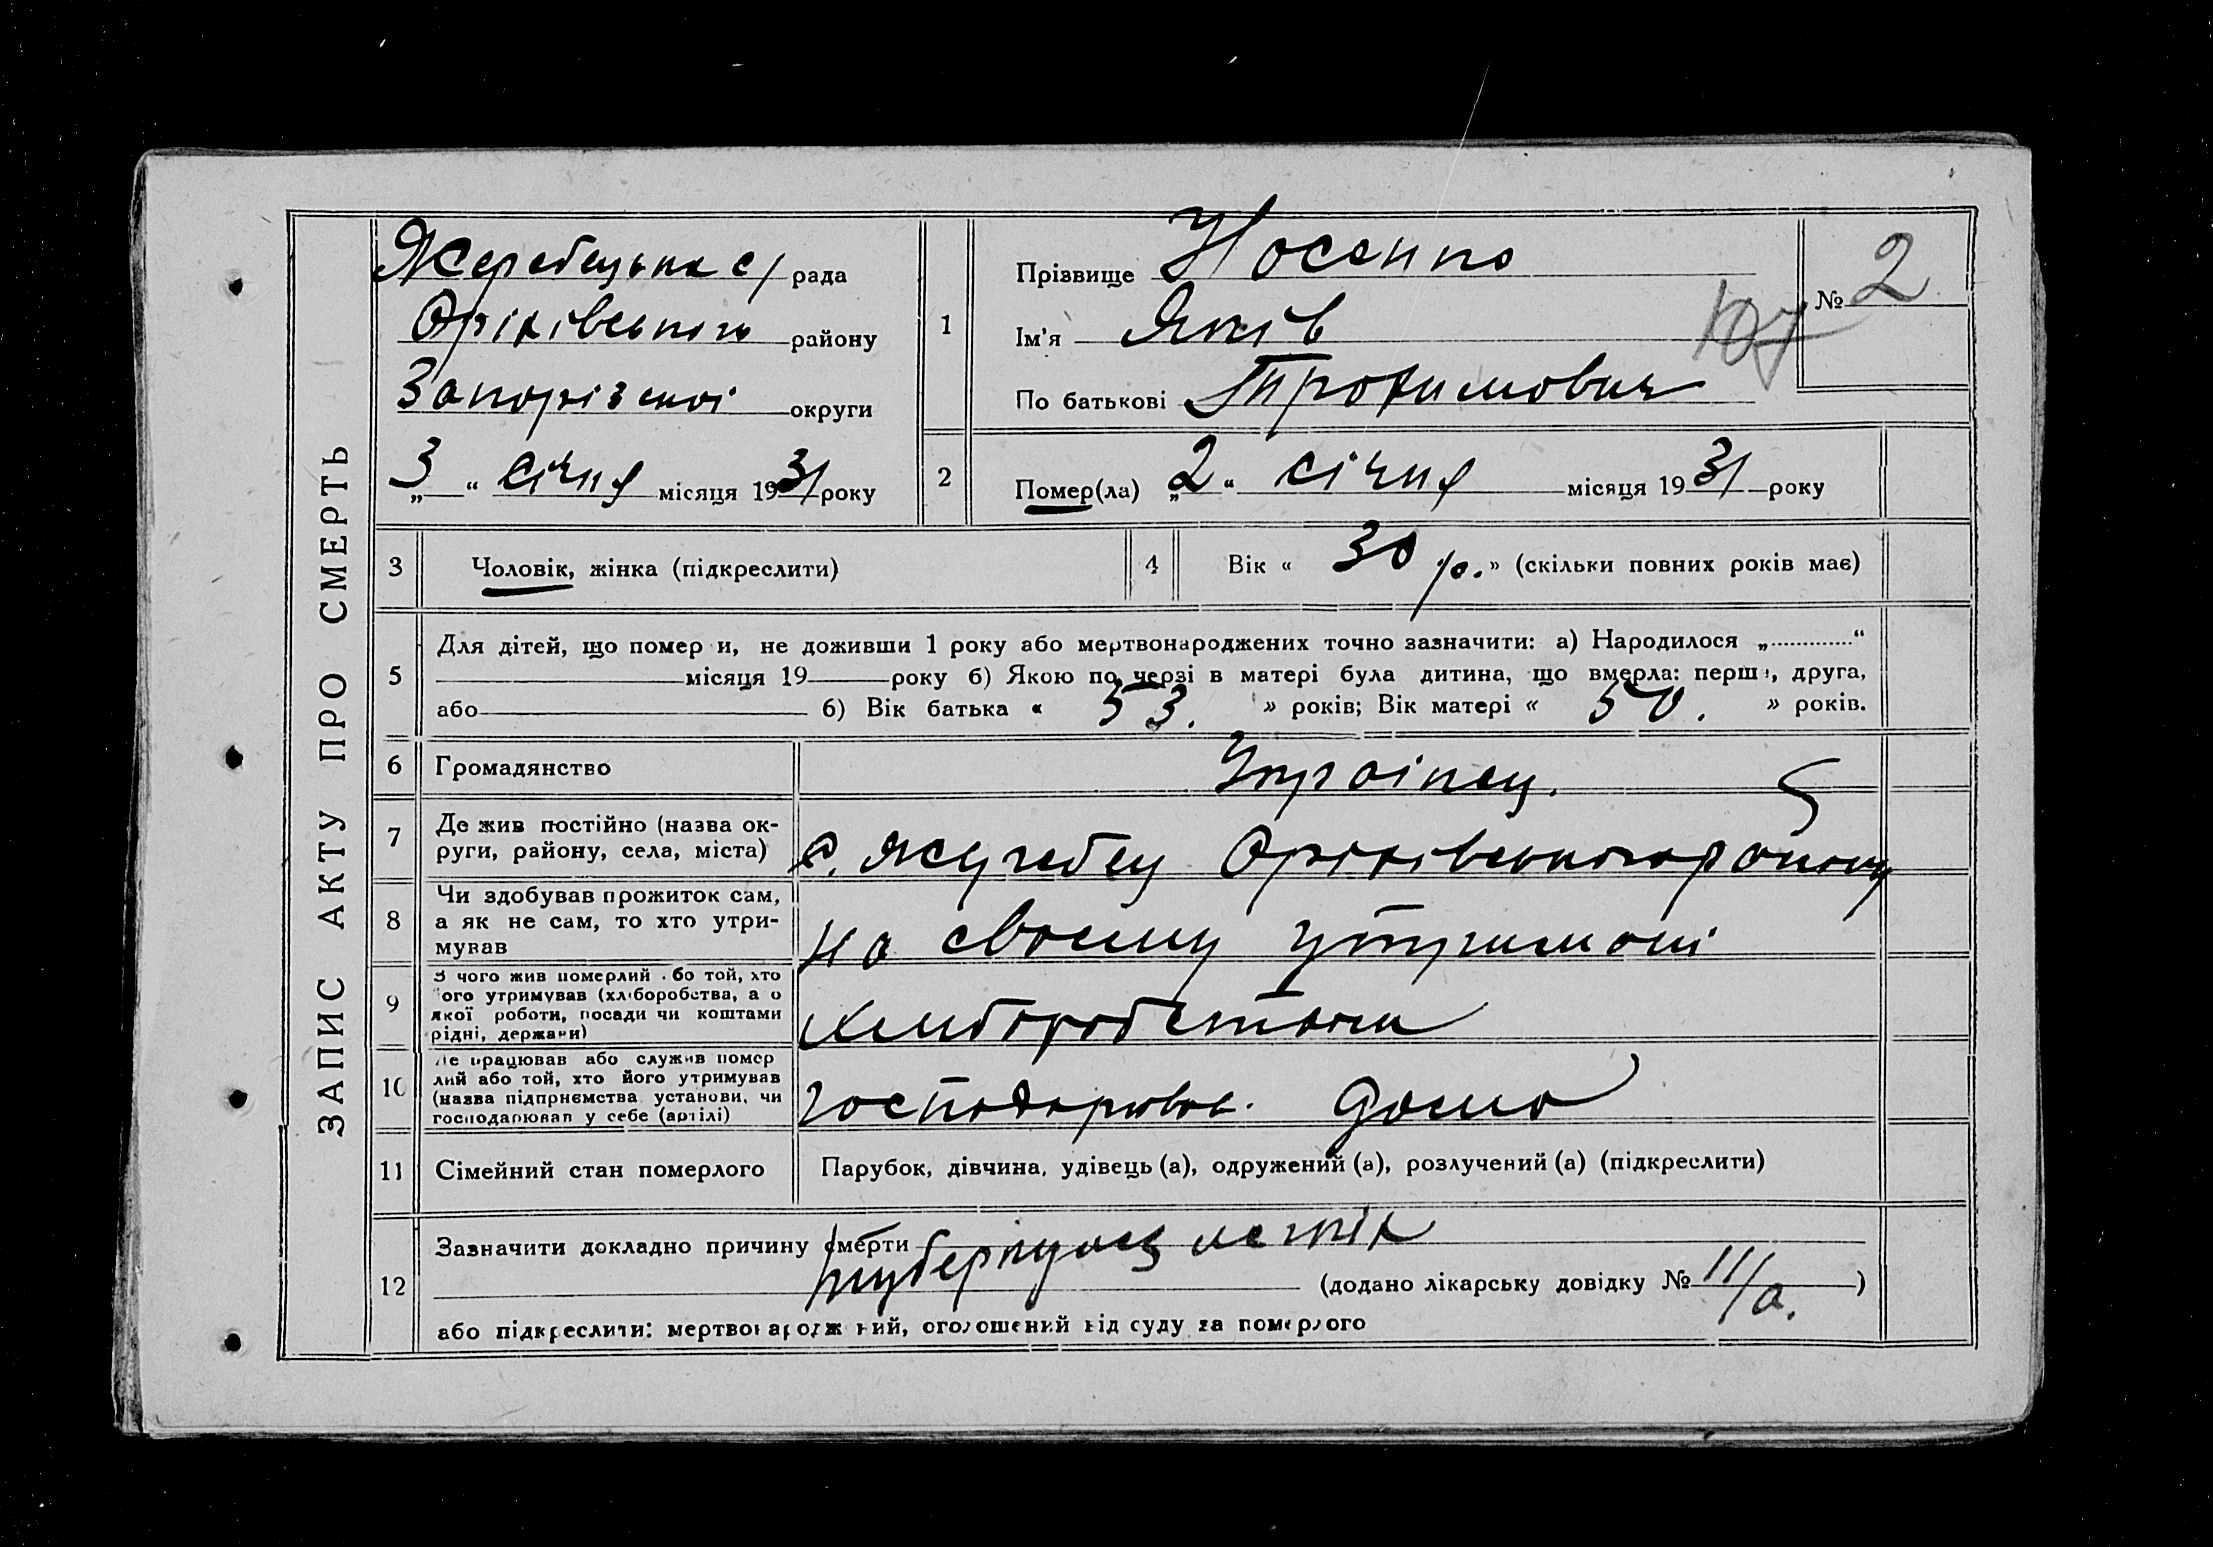 ЗАПИС АКТУ ПРО СМЕРТЬ
Жеребецька с/рада
Оріхівського району
Запорізької округи
„3“ січня місяця 1931 року
1
Прізвище Носенко
Ім'я Яків
По батькові Трохимович
№ 2
107
2
Помер(ла) „2“ січня місяця 1931 року
3 Чоловік, жінка (підкреслити)
4 Вік «30 р.» (скільки повних років має)
5
Для дітей, що помер и, не доживши 1 року або мертвонароджених точно зазначити: а) Народилося „............“
місяця 19 року б) Якою по черзі в матері була дитина, що вмерла: перша, друга,
або б) Вік батька « 53. » років; Вік матері « 50. » років.
6 Громадянство Українец.
7 Де жив постійно (назва ок-
руги, району, села, міста)
с. Жеребец Оріхівського району
8 Чи здобував прожиток сам,
а як не сам, то хто утри-
мував
на своему утримані
9 З чого жив померлий або той, хто
його утримував (хліборобства, а о
якої роботи, посади чи коштами
рідні, держави)
хлиборобством
10 Де працював або служив помер
лий або той, хто його утримував
(назва підприємства, установи, чи
господарював у себе (артілі)
господарював. дома
11 Сімейний стан померлого Парубок, дівчина, удівець (а), одружений (а), розлучений (а) (підкреслити)
12 Зазначити докладно причину смерти
туберкульоз легких
(додано лікарську довідку № 11/а.)
або підкреслити: мертвонароджений, оголошений від суду за померлого